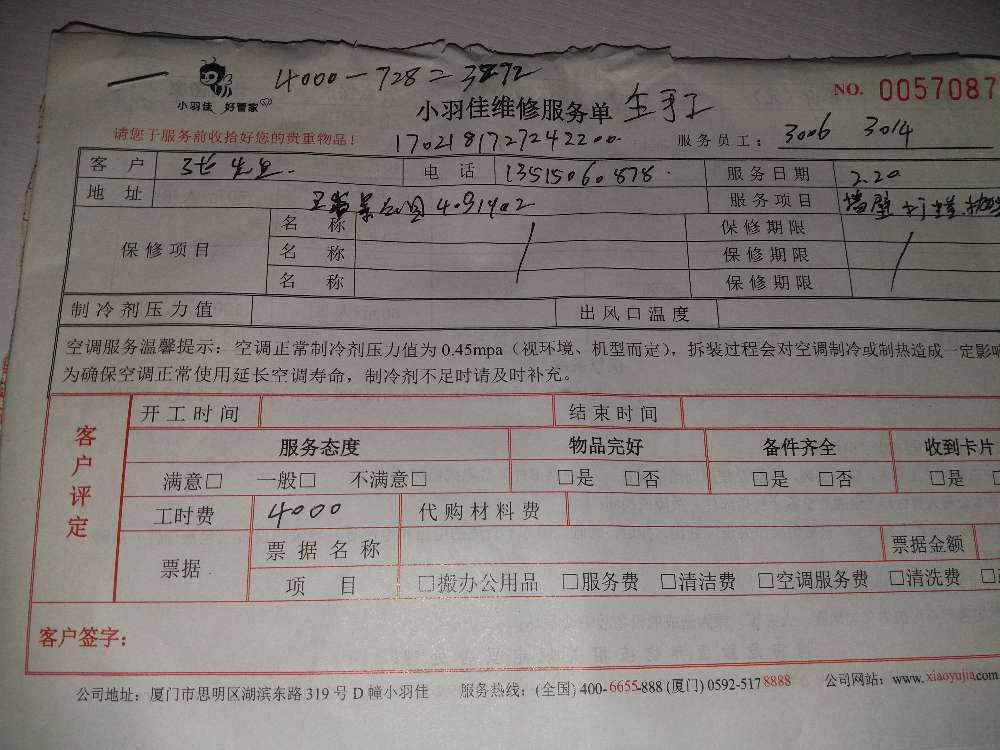 4000-728=3272
小羽佳 好管家
小羽佳维修服务单 NO. 0057087
请您于服务前收拾好您的贵重物品！
17021817272422200 服务员工： 3006 3014
客户 先生 电话 13515060878 服务日期 2.20
地址 服务项目 墙壁
保修项目 名称 保修期限
名称 保修期限
名称 保修期限
制冷剂压力值 出风口温度
空调服务温馨提示：空调正常制冷剂压力值为0.45mpa（视环境、机型而定），拆装过程会对空调制冷或制热造成一定影响
为确保空调正常使用延长空调寿命，制冷剂不足时请及时补充。
客户评定
开工时间 结束时间
服务态度 物品完好 备件齐全 收到卡片
满意□ 一般□ 不满意□ □是 □否 □是 □否 □是
工时费 4000 代购材料费
票据 票据名称 票据金额
项目 □搬办公用品 □服务费 □清洁费 □空调服务费 □清洗费
客户签字：
公司地址：厦门市思明区湖滨东路319号D幢小羽佳 服务热线：(全国) 400-6655-888 (厦门) 0592-5178888 公司网站：www.xiaoyujia.com